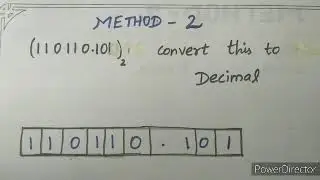 METHOD - 2
(110110.101)₂ convert this to
Decimal
1 1 0 1 1 0 . 1 0 1
PowerDirector